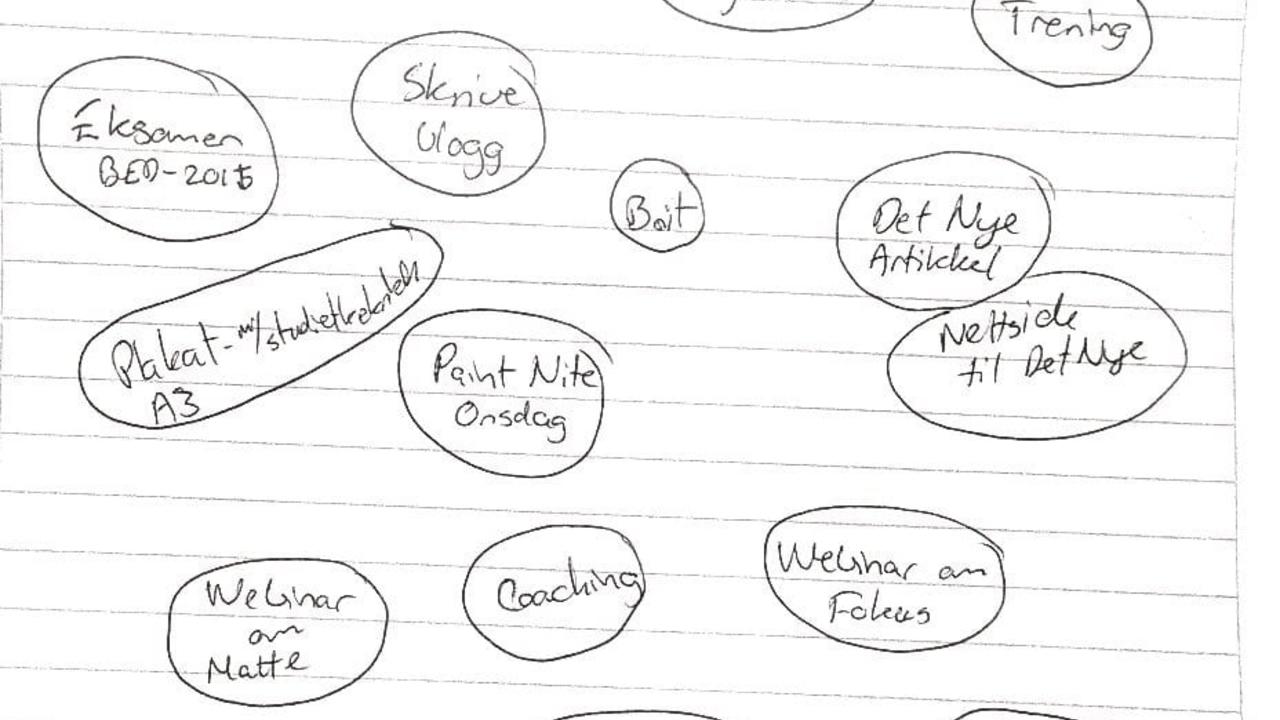 Trening
Skrive
Vlogg
Eksamen
BED-2015
Bait
Det Nye
Artikkel
Nettside
til Det Nye
Plakat - m/studietteknikk
A3
Paint Nite
Onsdag
Webinar om
Fokus
Coaching
Webinar
om
Matte